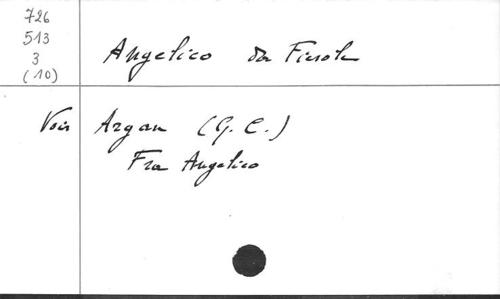 726
513
3
(10)
Angelico da Fiesole
Voir Argan (G. C.)
Fra Angelico